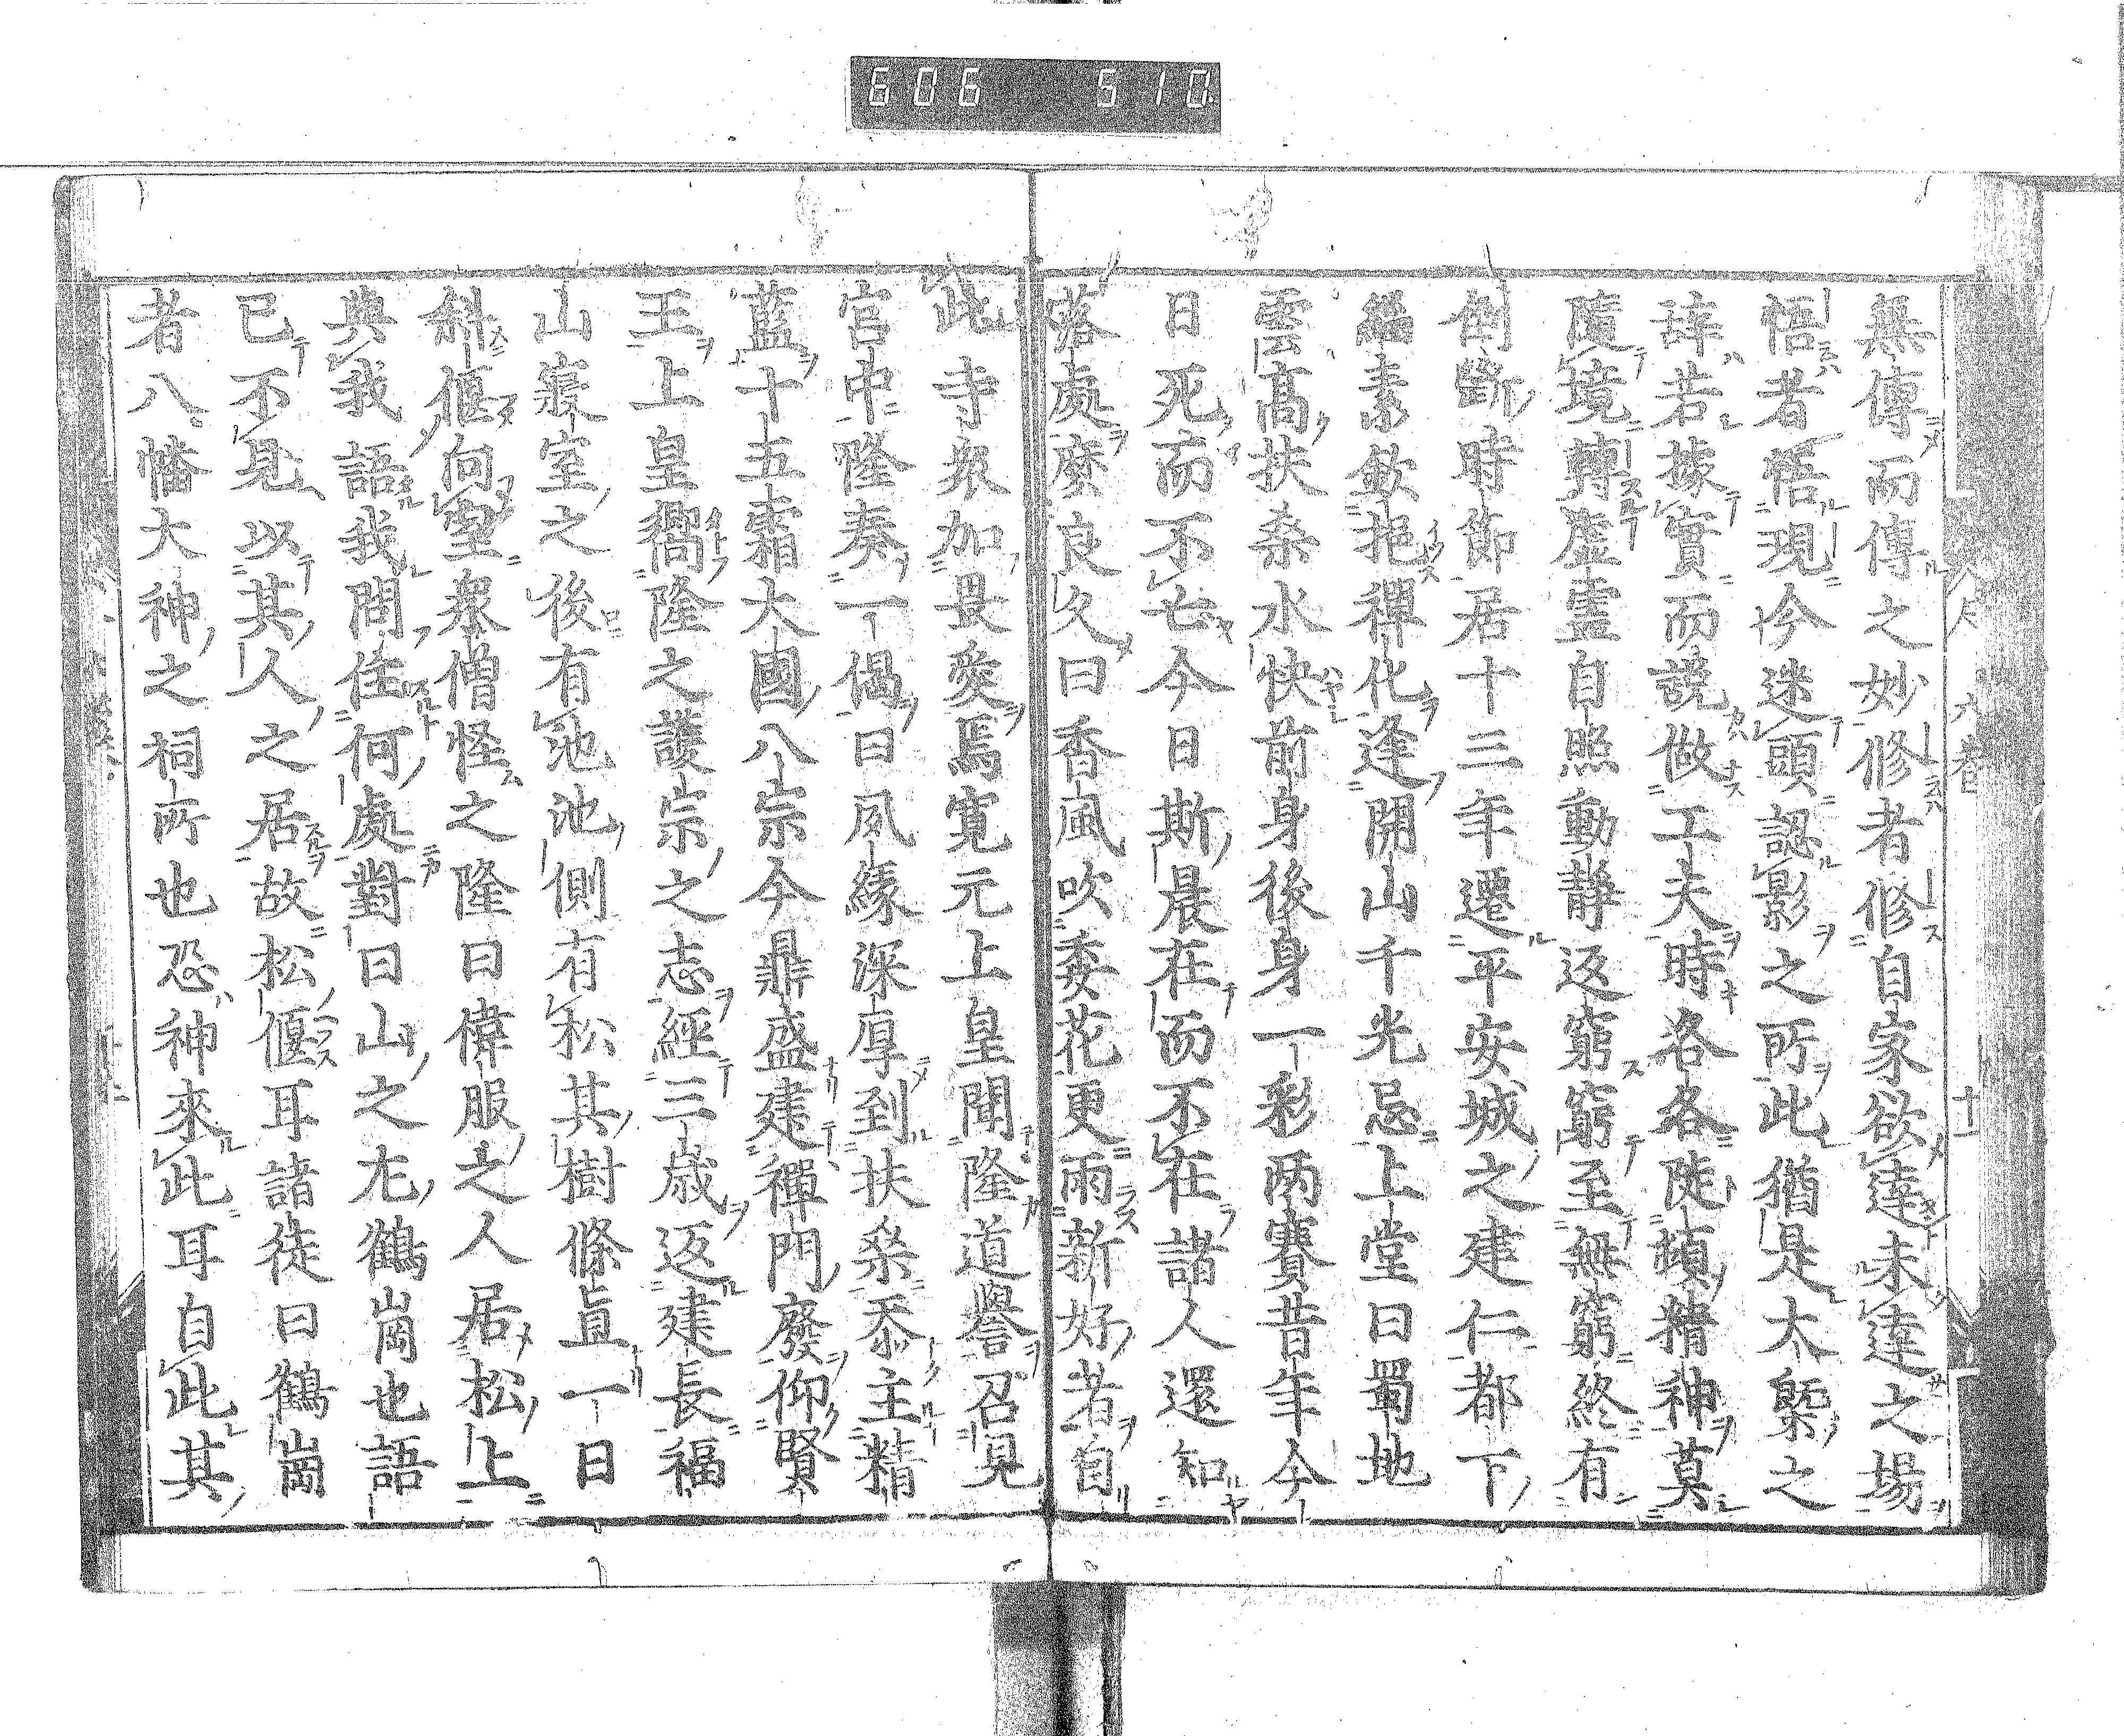 606 510
無傳而傳之妙修者修自家欲達未達之場
悟者悟現今迷頭認影之所此猶是太槩之
辞若據實而說做工夫時洛各陡頓精神莫
隨境轉虛靈自照動静返窮窮至無窮終有
倒斷時節居十三年遷平安城之建仁都下
緇素欽挹禪化逢開山千光忌上堂曰蜀地
雲高扶桑水快前身後身一彩兩賽昔年今
日死而不亡今日斯晨在而不在諸人還知
落處麼良久曰香風吹委花更雨新好者自
此寺衆加畏愛焉寬元上皇聞隆道譽召見
宮中隆奏一偈曰夙緣深厚到扶桑忝主精
藍十五霜大國八宗今鼎盛建禪門廢仰賢
王上皇嚮隆之護宗之志經三歲返建長福
山寢室之後有池池側有松其樹條直一日
斜偃向室衆僧怪之隆曰偉服之人居松上
與我語我問住何處對曰山之左鶴崗也語
已不見以其人之居故松偃耳諸徒曰鶴崗
者八幡大神之祠所也恐神來此耳自此其
六巻
十一